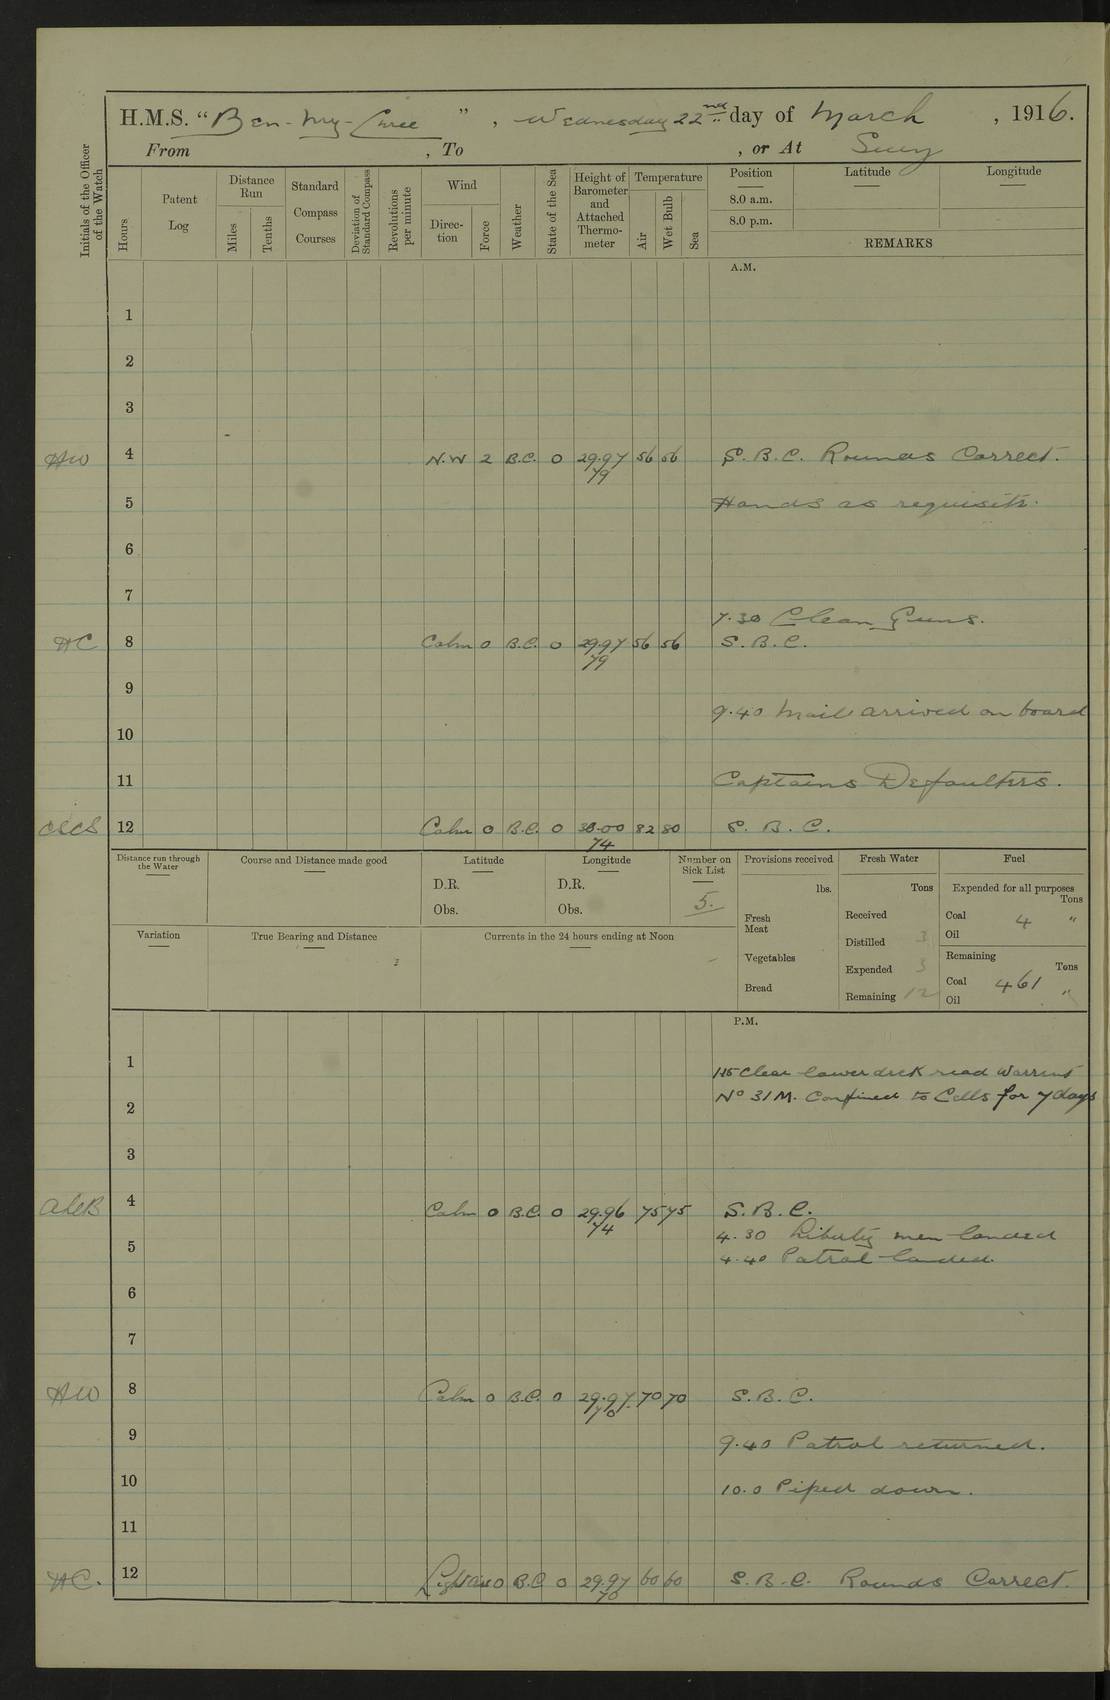 H.M.S. “Ben-my-Chree” , Wednesday 22nd day of March , 1916.
From , To , or At Suez
Initials of the Officer of the Watch
Hours
Patent Log
Distance Run
Miles
Tenths
Standard Compass Courses
Deviation of Standard Compass
Revolutions per minute
Wind
Direction
Force
Weather
State of the Sea
Height of Barometer and Attached Thermometer
Temperature
Air
Wet Bulb
Sea
Position
8.0 a.m.
8.0 p.m.
Latitude
Longitude
REMARKS
A.M.
1
2
3
HW 4 N.W 2 B.C. 0 29.97 56 56 S.B.C. Rounds Correct.
79
5 Hands as requisite.
6
7
7.30 Clean Guns.
HC 8 Calm 0 B.C. 0 29.97 56 56 S.B.C.
79
9
9.40 Mail arrived on board
10
11 Captains Defaulters.
12 Calm 0 B.C. 0 30.00 82 80 S.B.C.
74
Distance run through the Water
Course and Distance made good
Latitude
D.R.
Obs.
Longitude
D.R.
Obs.
Number on Sick List
5.
Provisions received
lbs.
Fresh Meat
Vegetables
Bread
Fresh Water
Tons
Received
Distilled 3
Expended 3
Remaining 12
Fuel
Expended for all purposes
Tons
Coal 4 "
Oil
Remaining
Tons
Coal 461 "
Oil
Variation
True Bearing and Distance
Currents in the 24 hours ending at Noon
P.M.
1 1.15 Clear lower deck read Warrant
2 No 31 M. Confined to Cells for 7 days
3
ALCB 4 Calm 0 B.C. 0 29.96 75 75 S.B.C.
74
4.30 Liberty men landed
5 4.40 Patrol landed.
6
7
HW 8 Calm 0 B.C. 0 29.97 70 70 S.B.C.
70
9 9.40 Patrol returned.
10 10.0 Piped down.
11
HC. 12 Light Airs 0 B.C. 0 29.97 60 60 S.B.C. Rounds Correct.
70